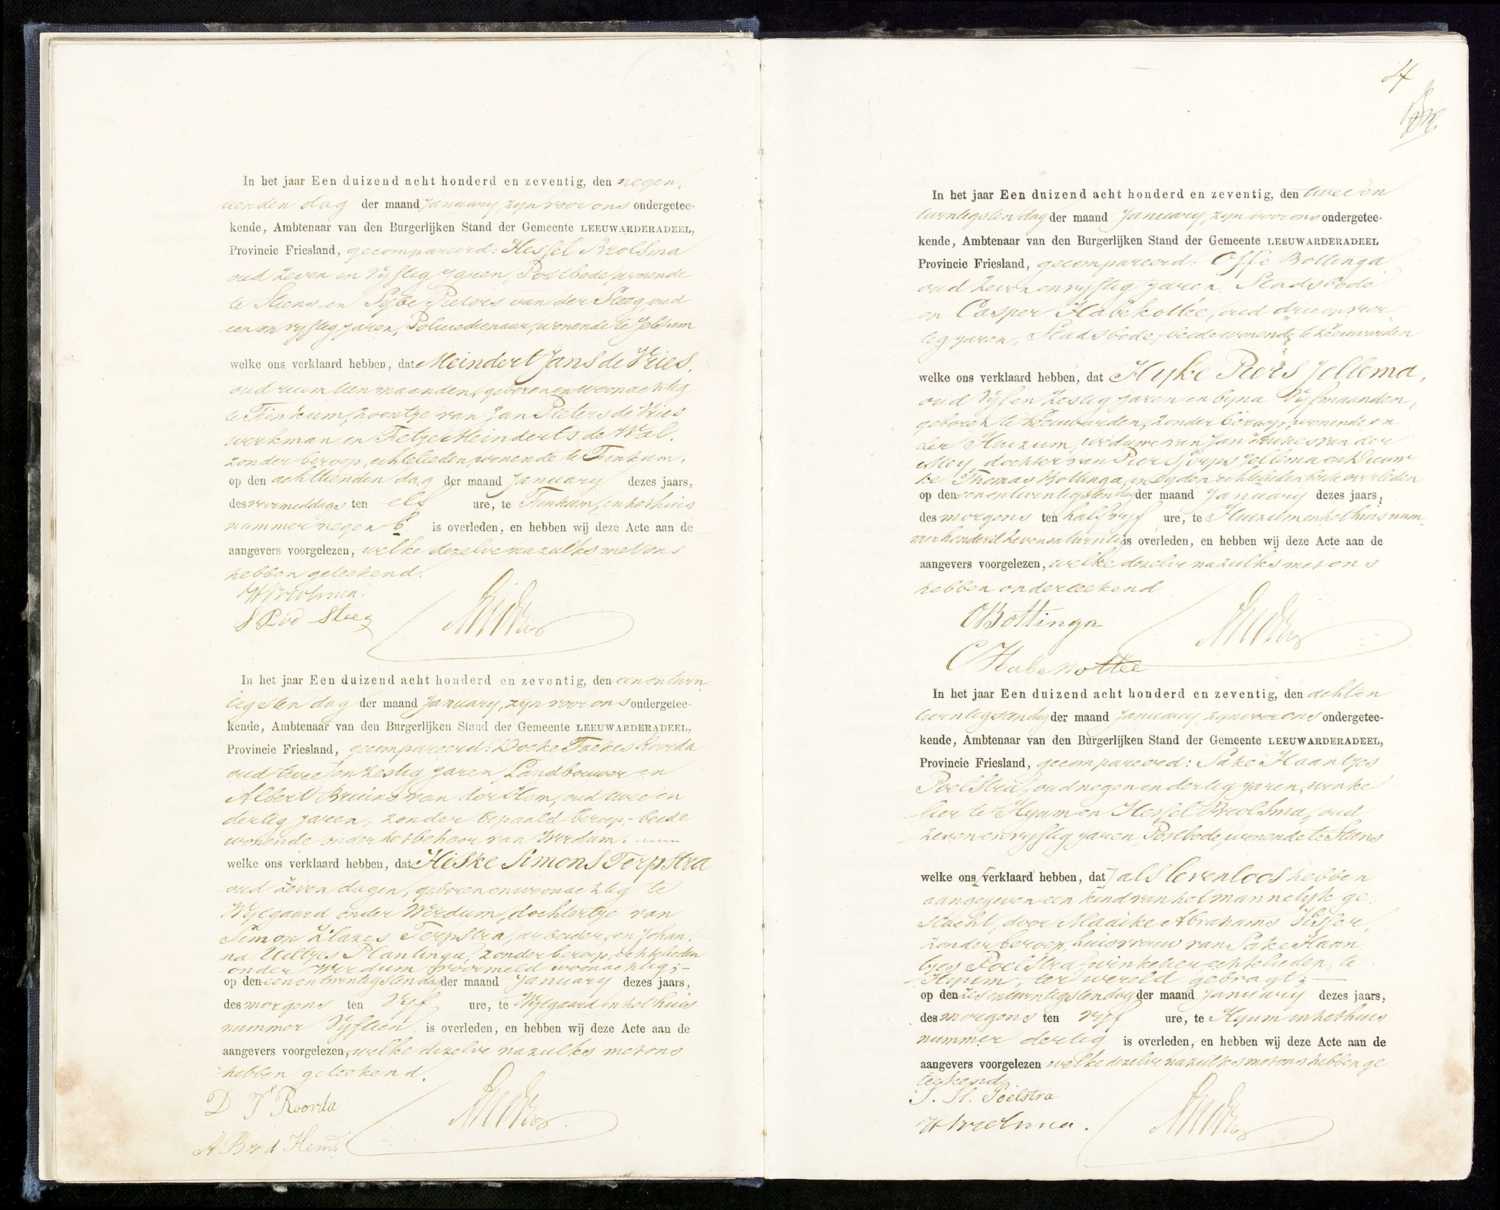 In het jaar Een duizend acht honderd en zeventig, den negen
tienden dag der maand January, zyn voor ons ondergetee-
kende, Ambtenaar van den Burgerlijken Stand der Gemeente LEEUWARDERADEEL,
Provincie Friesland, gecompareerd: Hessel
oud zeven en vyftig jaren, Postbode, wonende
te Stiens en Sybe Pieters van der Steeg oud
een en vyftig jaren, Policiedienaar, wonende te Jelsum
welke ons verklaard hebben, dat Meindert Jans de Vries,
oud ruim tien maanden, geboren en woonachtig
te Finkum, zoontje van Jan Pieters de Vries
werkman en Tietje Meinderts de Wal,
zonder beroep, echtelieden, wonende te Finkum,
op den achttienden dag der maand January dezes jaars,
des voormiddags ten elf ure, te Finkum, in het huis
nummer negen b is overleden, en hebben wij deze Acte aan de
aangevers voorgelezen, welke dezelve nazulks met ons
hebben geteekend.
S P v d Steeg
In het jaar Een duizend acht honderd en zeventig, den een en twin
tigsten dag der maand January, zyn voor ons ondergetee-
kende, Ambtenaar van den Burgerlijken Stand der Gemeente LEEUWARDERADEEL,
Provincie Friesland, gecompareerd: Douke Roorda
oud twee en zestig jaren, Landbouwer en
Albert Bruins van der Hem, oud twee en
dertig jaren, zonder bepaald beroep, beide
wonende onder het behoor van Wirdum.
welke ons verklaard hebben, dat Hiske Simons Terpstra
oud zeven dagen, geboren en woonachtig te
Wytgaard onder Wirdum, dochtertje van
Simon Klazes Terpstra, arbeider, en Johan-
na Uiltjes Plantinga, zonder beroep, echtelieden
onder Wirdum voormeld woonachtig;
op den een en twintigsten dag der maand January dezes jaars,
des morgens ten vyf ure, te Wytgaard in het huis
nummer Vyftien is overleden, en hebben wij deze Acte aan de
aangevers voorgelezen, welke dezelve nazulks met ons
hebben geteekend.
D T Roorda
A B v d Hem
4
In het jaar Een duizend acht honderd en zeventig, den twee en
twintigsten dag der maand January, zyn voor ons ondergetee-
kende, Ambtenaar van den Burgerlijken Stand der Gemeente LEEUWARDERADEEL
Provincie Friesland, gecompareerd: Offe Bottinga,
oud zeven en vyftig jaren, Stadsbode
en Casper Habekotte, oud drie en veer-
tig jaren, Stadsbode, beide wonende te Leeuwarden
welke ons verklaard hebben, dat Hyke Piers Jellema,
oud Vyf en zestig jaren en byna Vyf maanden,
geboren te Leeuwarden, zonder beroep, wonende on
der Huizum, weduwe van Jan van der
Mey, dochter van Pier Jellema en Dieuw
ke Thomas Bottinga, beide overleden
op den een en twintigsten dag der maand January dezes jaars,
des morgens ten half vyf ure, te Huizum in het huis num
mer honderd zeven en twintig is overleden, en hebben wij deze Acte aan de
aangevers voorgelezen, welke dezelve nazulks met ons
hebben onderteekend
O Bottinga
C Habekotte
In het jaar Een duizend acht honderd en zeventig, den acht en
twintigsten dag der maand January zyn voor ons ondergetee-
kende, Ambtenaar van den Burgerlijken Stand der Gemeente LEEUWARDERADEEL,
Provincie Friesland, gecompareerd: Sake Haantjes
Poelstra, oud negen en dertig jaren, winke
lier te Hyum en Hessel oud
zeven en vyftig jaren, Postbode, wonende te Stiens
welke ons verklaard hebben, dat zy als levenloos hebben
aangegeven een kind van het mannelyk ge-
slacht, door Maaike Abrahams Visser,
zonder beroep, huisvrouw van Sake Haan
tjes Poelstra, winkelier, echtelieden, te
Hyum, ter wereld gebragt;
op den zes en twintigsten dag der maand January dezes jaars,
des morgens ten vyf ure, te Hyum in het huis
nummer dertig is overleden, en hebben wij deze Acte aan de
aangevers voorgelezen welke dezelve nazulks met ons hebben ge
teekend
S. H. Poelstra